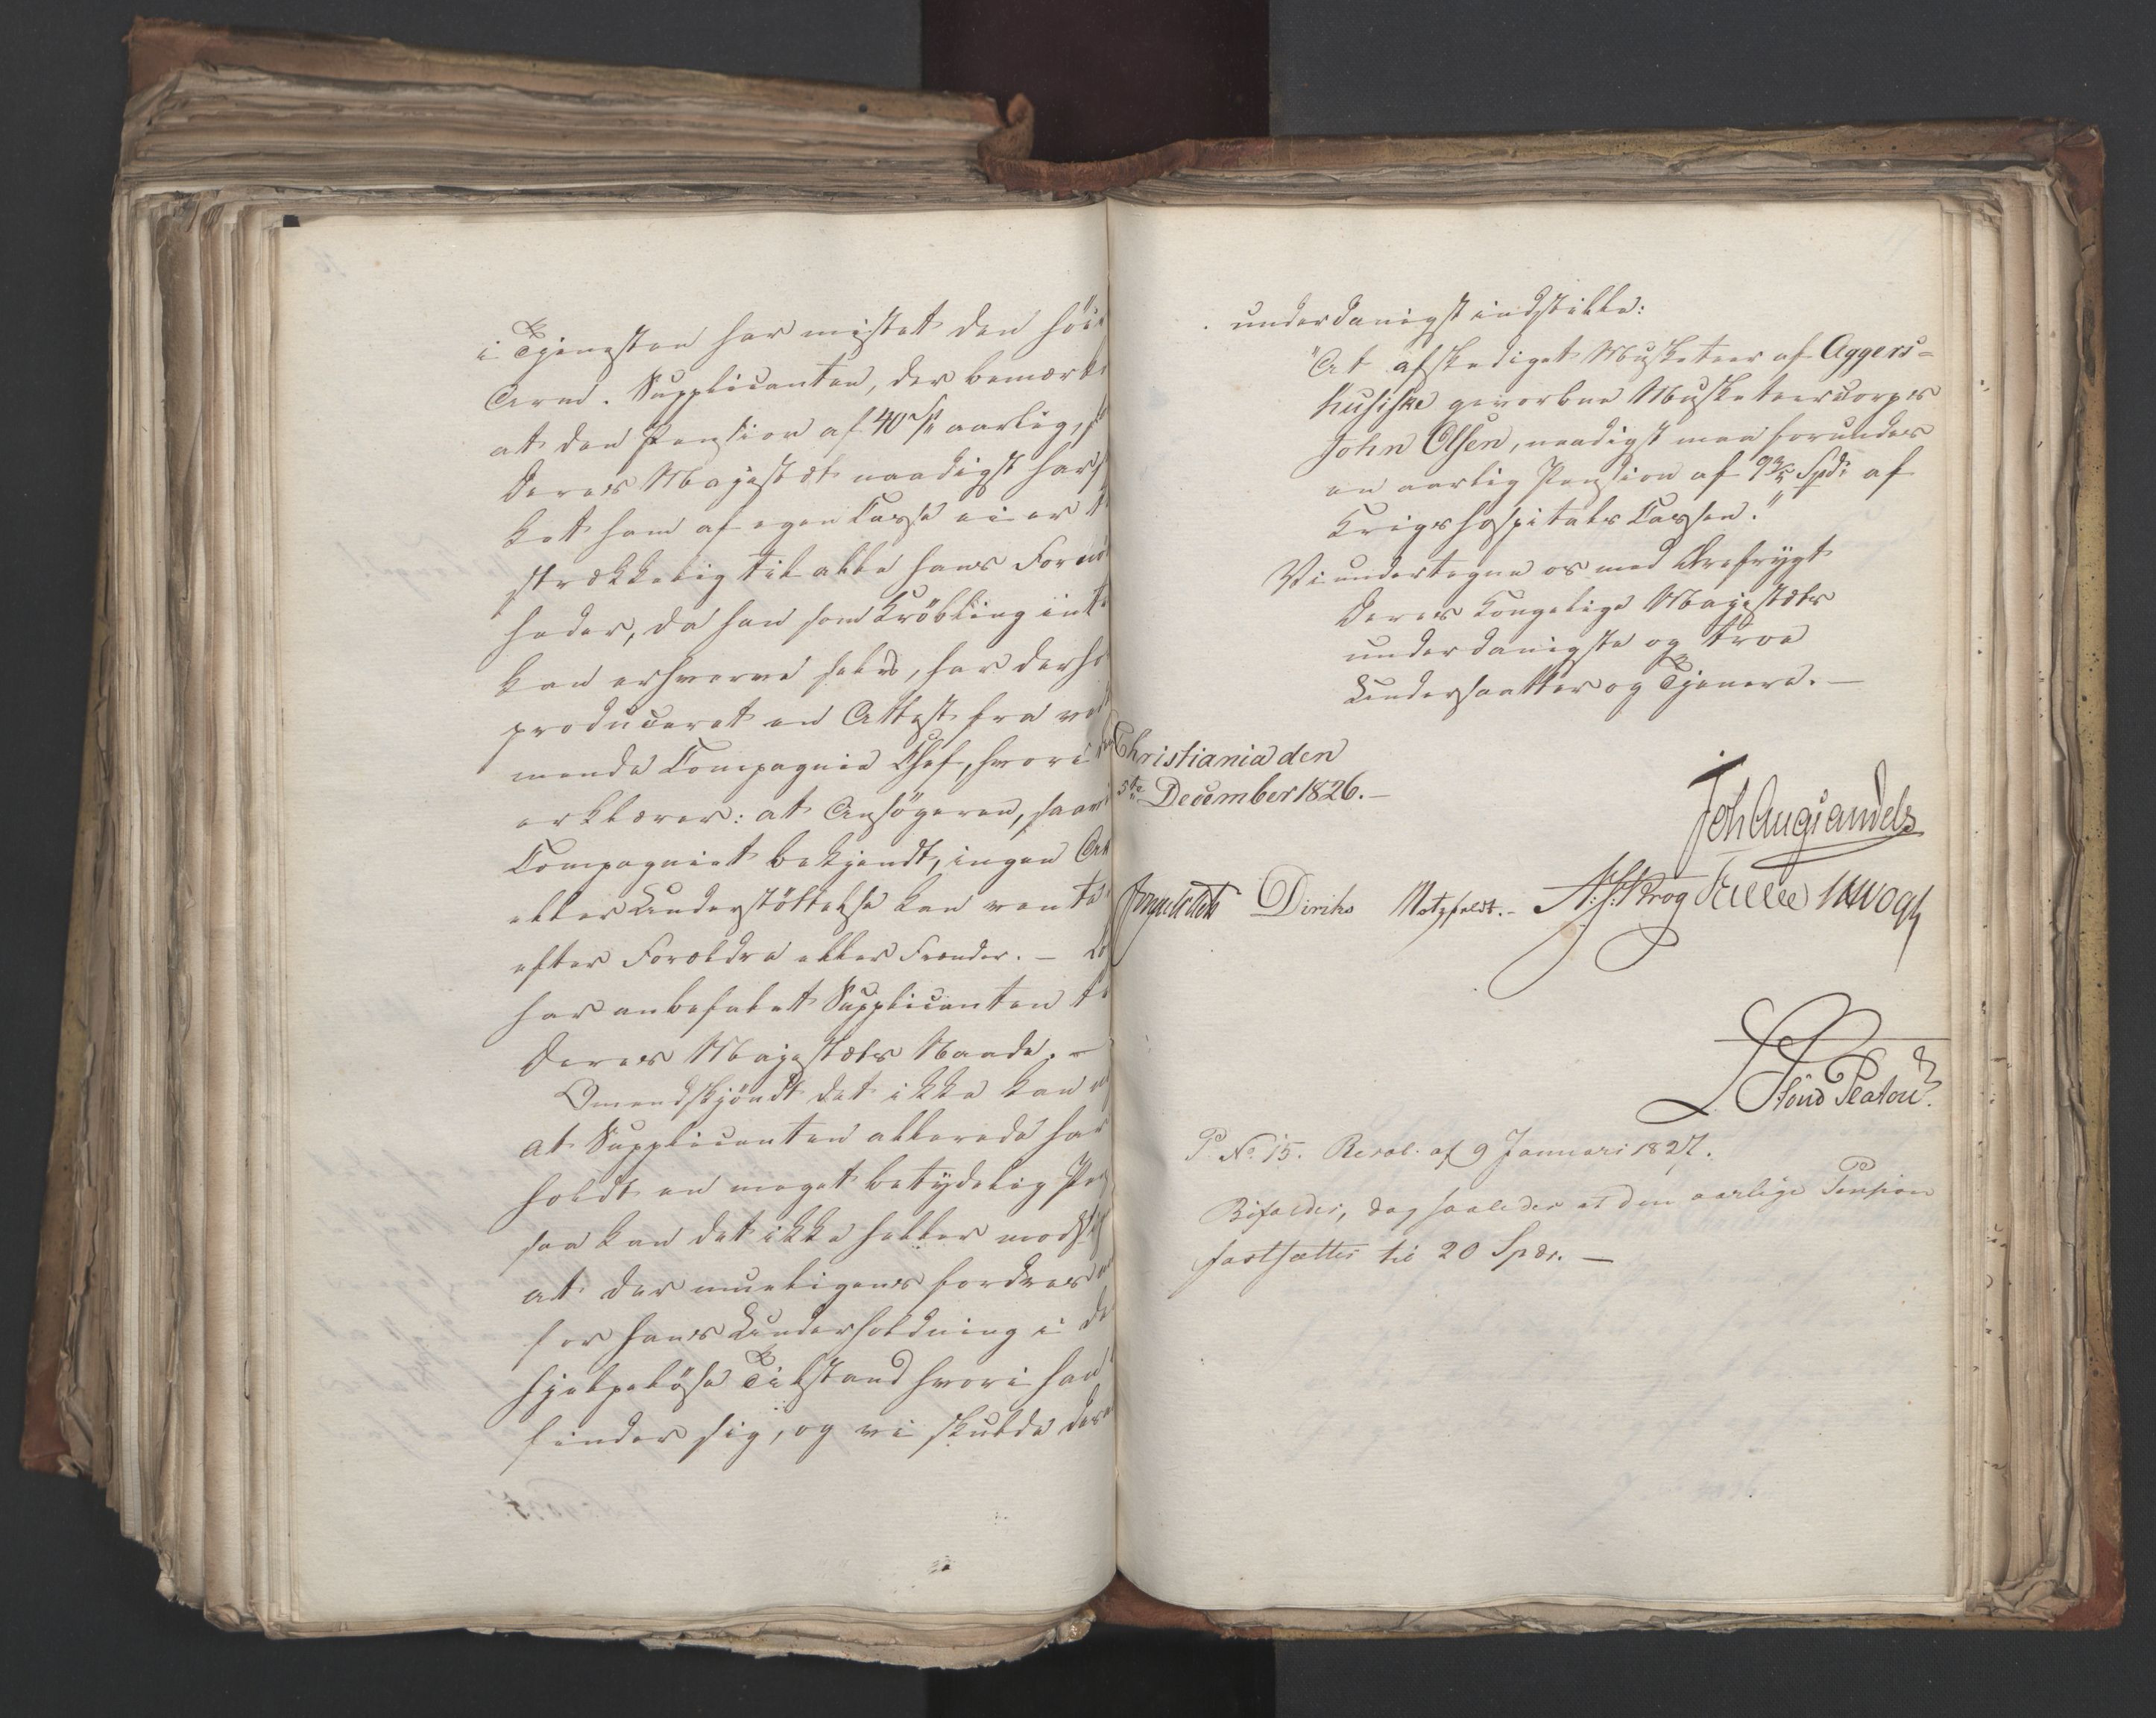 i Tjenesten har mistet den höi
Arm. Supplicanten, der bemærke
at den Pension af 40 Sp aarlig,
Deres Majestæt naadigst har
ket ham af egen Casse ei er
strækkelig til alle hans Fornö
heder, da han som Kröbling int
kan erhverve selv, har derho
produceret en Attest fra ved
mende Compagnie Chef, hvori
erklærer: at Ansögeren, saavi
Compagniet bekjendt, ingen Ar
eller Understöttelse kan vente
efter Forældre eller Frænder. –
har anbefalet Supplicanten ti
Deres Majestæts Naade. –
Omendskjöndt det ikke kan
at Supplicanten allerede har
holdt en meget betydelig Pen
saa kan det ikke heller modsi
at der mueligens fordres
for hans Underholdning i de
hjelpelöse Tilstand hvori han
finder sig, og vi skulde der
underdanigst indstille:
"At afskediget Musketeer af Aggers=
huusiske gevorbne Musketeercorps
John Olsen, naadigst maa forundes
en aarlig Pension af 9 3/5 Spd. af
Krigshospitals Cassen."
Vi undertegne os med Ærefrygt
Deres Kongelige Majestæts
underdanigste og troe
Undersaatter og Tjenere. –
Christiania den
5te December 1826. –
Joh Aug Sandels
Diriks Motzfeldt. – Krog Vogt
P. No. 15. Resol. af 9 Januari 1827.
Bifaldes, dog saaledes at den aarlige Pension
fastsættes til 20 Spdr. –